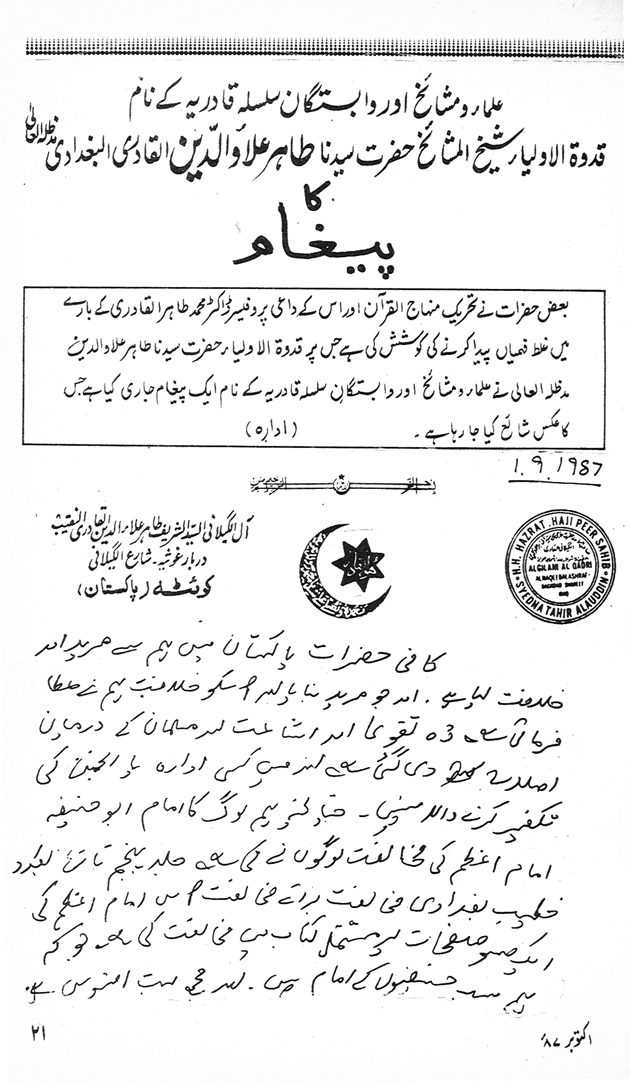 علماء و مشائخ اور وابستگان سلسلہ قادریہ کے نام
قدوۃ الاولیاء شیخ المشائخ حضرت سیدنا طاہر علاؤالدین القادری البغدادی مدظلہ العالی
کا
پیغام
بعض حضرات نے تحریک منہاج القرآن اور اس کے داعی پروفیسر ڈاکٹر محمد طاہر القادری کے بارے
میں غلط فہمیاں پیدا کرنے کی کوشش کی ہے جس پر قدوۃ الاولیاء حضرت سیدنا طاہر علاؤالدین
مدظلہ العالی نے علماء و مشائخ اور وابستگان سلسلہ قادریہ کے نام ایک پیغام جاری کیا ہے جس
کا عکس شائع کیا جا رہا ہے۔ (ادارہ)
1.9.1987
آل الگیلانی السید الشریف طاہر علاء الدین القادری النقیب
دربار غوثیہ۔ شارع الگیلانی
کوئٹہ (پاکستان)
H.H. HAZRAT. HAJI PEER SAHIB
SYEDNA TAHIR ALAUDDIN
ALGILANI AL QADRI
کافی حضرات پاکستان میں ہم سے مرید اور
خلافت لیا ہے۔ اور جو مرید بنایا اور اسکو خلافت ہم نے عطا
فرمائی ہے وہ تقویٰ اور اشاعت اور مسلمان کے درمیان
اصلاح دی گئی ہے اور میں کسی ادارہ یا انجمن کی
تکفیر کرنے والا نہیں۔ ہم لوگ کا امام ابو حنیفہ
امام اعظم کی مخالفت لوگوں نے کی ہے جلد پنجم تاریخ بغداد
خطیب بغدادی مخالفت برائے مخالفت اس امام اعظم کی
ایک سو صفحات پر مشتمل کتاب میں مخالفت کی ہے جو کہ
ہم سب حنفیوں کے امام ہیں۔ اور مجھے بہت افسوس ہے۔
۲۱
اکتوبر ۸۷ء